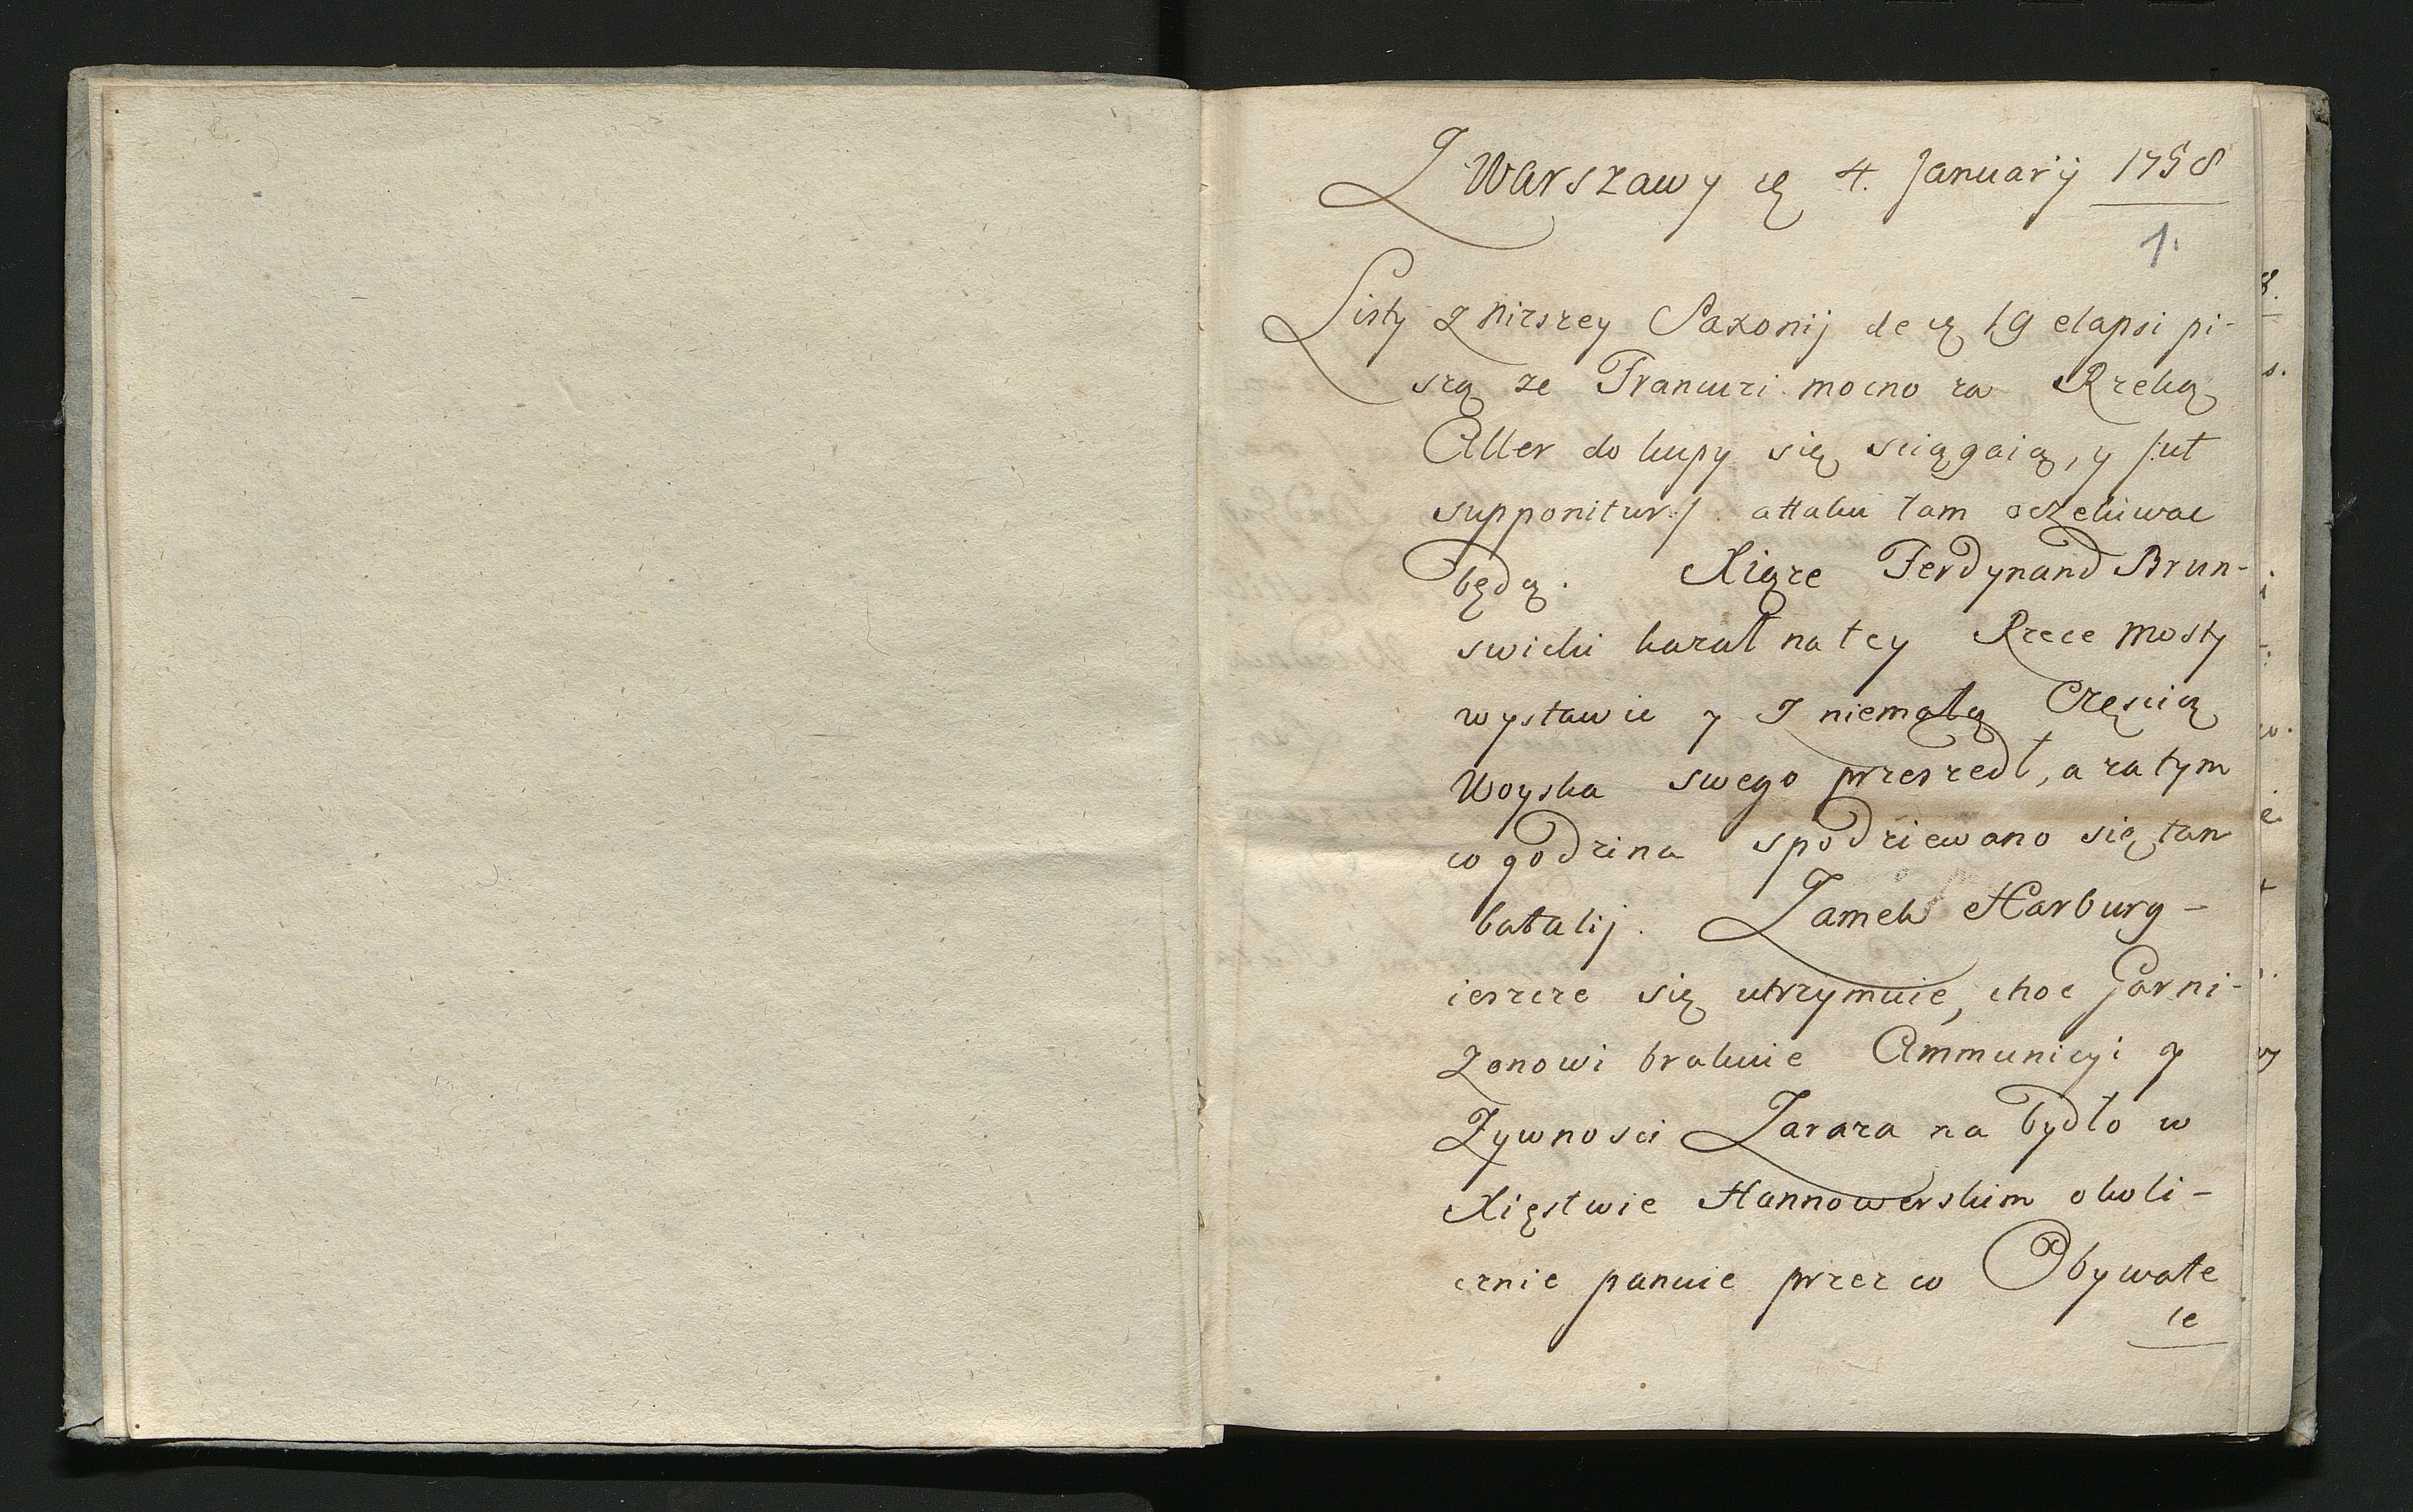 Z Warszawy ię 4. Januarij 1758
1.
Listy z Nizszey Saxonij de ię 19 elapsi pi-
szą ze Francuzi mocno za Rzeką
Aller do kupy się sciągaią, y /:ut
supponitur:/ attaku tam oczekiwac
będą. Xiąze Ferdynand Brun-
swicki kazał na tey Rzece Mosty
wystawic y z niemałą Częscią
Woyska swego przeszedł, a za tym
co godzina spodziewano się tam
batalij. Zamek Harburg-
ieszcze się utrzymuie, choc Garni-
zonowi brakuie Ammunicyi y
Zywnosci Zaraza na bydło w
Xięstwie Hannowerskim okoli-
cznie panuie przez co Obywate
le